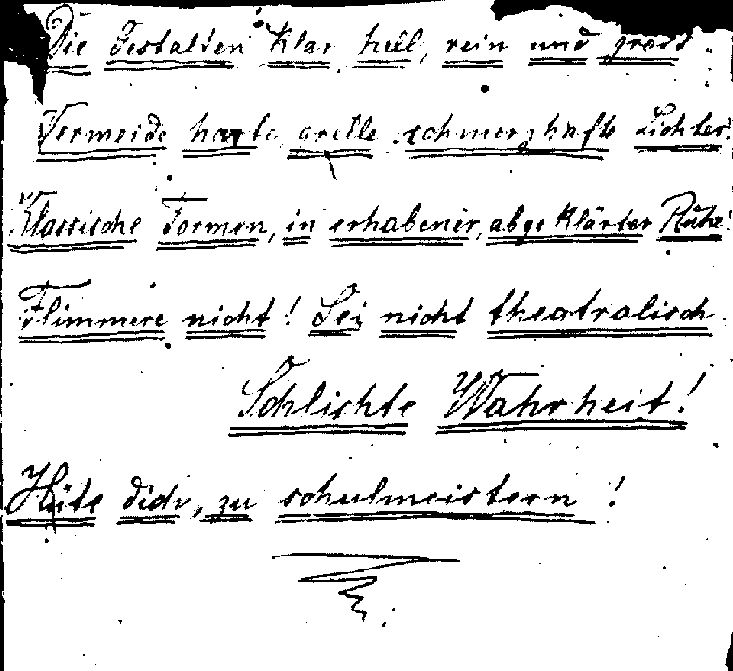 Die Gestalten klar hell, rein und gross.
Vermeide harte grelle schmerzhafte Lichter!
Klassische Formen, in erhabener, abgeklärter Ruhe!
Flimmere nicht! Sei nicht theatralisch.
Schlichte Wahrheit!
Hüte dich, zu schulmeistern!